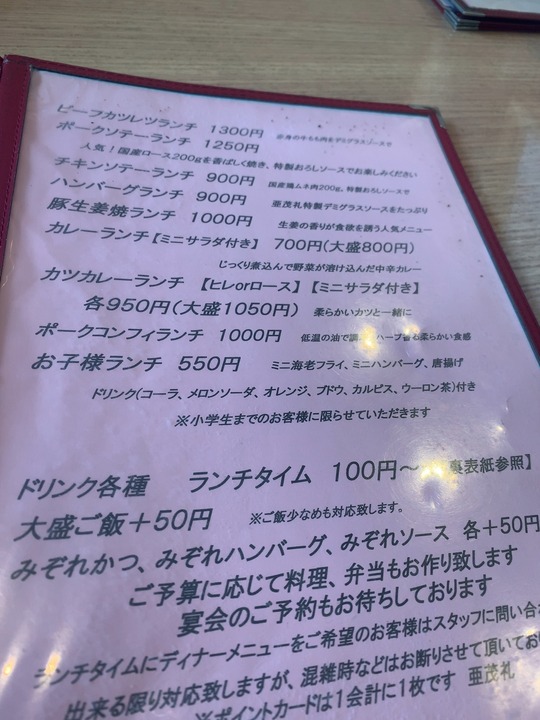 ビーフカツレツランチ 1300円 赤身の牛もも肉をデミグラスソースで
ポークソテーランチ 1250円
人気!国産ロース200gを香ばしく焼き、特製おろしソースでお楽しみください
チキンソテーランチ 900円 国産鶏ムネ肉200g、特製おろしソースで
ハンバーグランチ 900円 亜茂礼特製デミグラスソースをたっぷり
豚生姜焼ランチ 1000円 生姜の香りが食欲を誘う人気メニュー
カレーランチ【ミニサラダ付き】 700円(大盛800円)
じっくり煮込んで野菜が溶け込んだ中辛カレー
カツカレーランチ 【ヒレorロース】【ミニサラダ付き】
各950円(大盛1050円) 柔らかいカツと一緒に
ポークコンフィランチ 1000円 低温の油で ハーブ香る柔らかい食感
お子様ランチ 550円 ミニ海老フライ、ミニハンバーグ、唐揚げ
ドリンク(コーラ、メロンソーダ、オレンジ、ブドウ、カルピス、ウーロン茶)付き
※小学生までのお客様に限らせていただきます
ドリンク各種 ランチタイム 100円~ 裏表紙参照】
大盛ご飯+50円 ※ご飯少なめも対応致します。
みぞれかつ、みぞれハンバーグ、みぞれソース 各+50円
ご予算に応じて料理、弁当もお作り致します
宴会のご予約もお待ちしております
ランチタイムにディナーメニューをご希望のお客様はスタッフに問い合
出来る限り対応致しますが、混雑時などはお断りさせて頂いてお
※ポイントカードは1会計に1枚です 亜茂礼